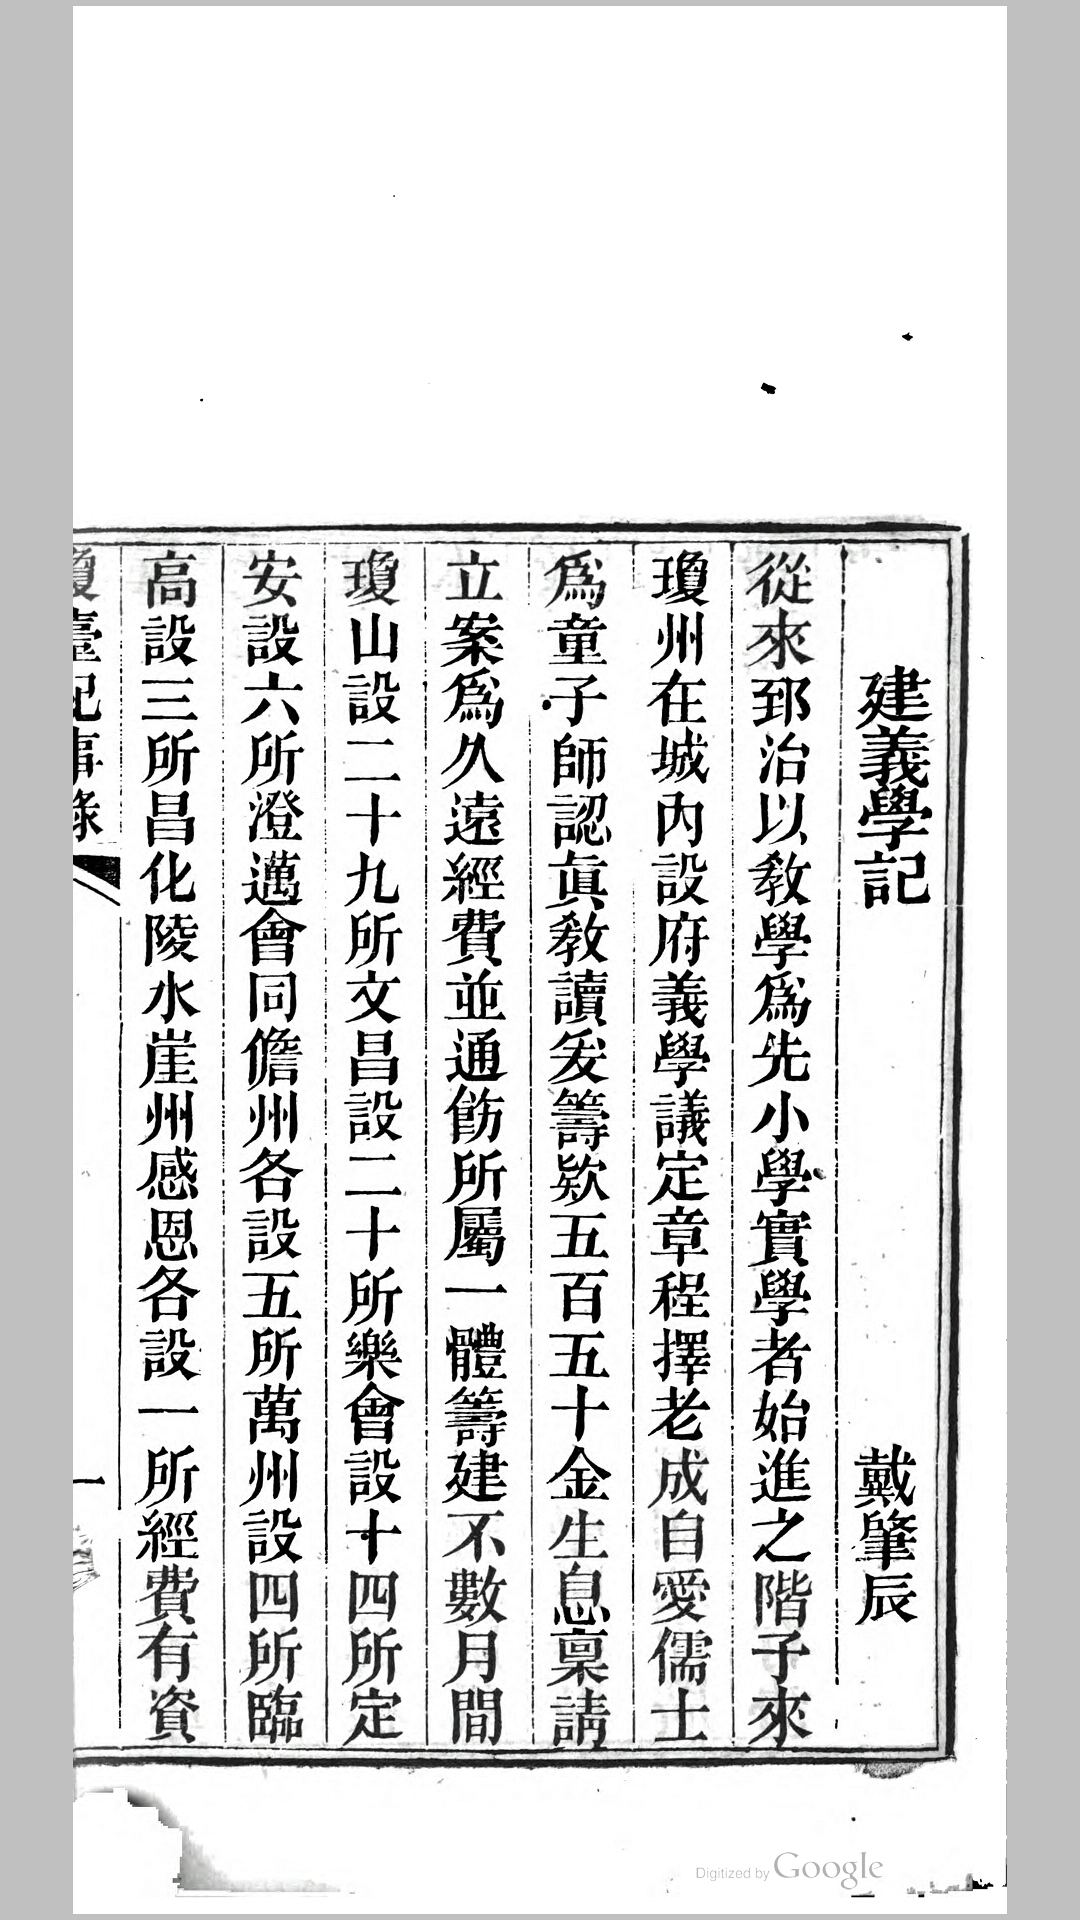 建義學記 戴肇辰
從來郅治以教學爲先小學實學者始進之階子來
瓊州在城內設府義學議定章程擇老成自愛儒士
爲童子師認眞教讀爰籌欵五百五十金生息稟請
立案爲久遠經費並通飭所屬一體籌建不數月間
瓊山設二十九所文昌設二十所樂會設十四所定
安設六所澄邁會同儋州各設五所萬州設四所臨
高設三所昌化陵水崖州感恩各設一所經費有資
瓊臺紀事錄
一
Digitized by Google